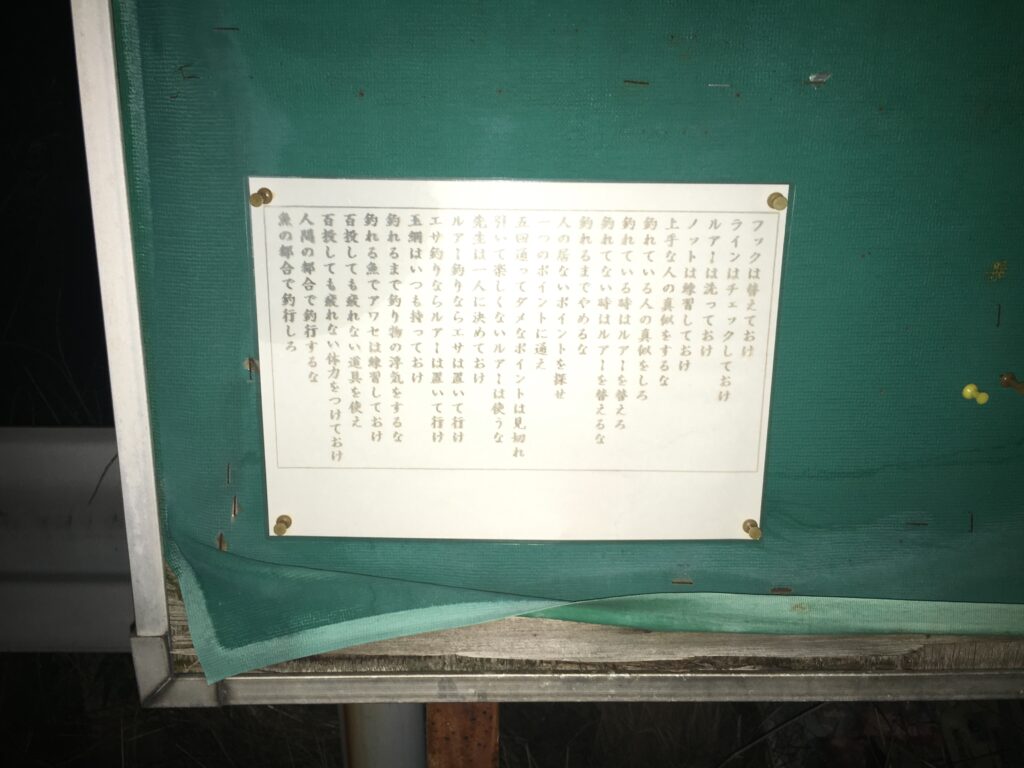 フックは替えておけ
ラインはチェックしておけ
ルアーは洗っておけ
ノットは練習しておけ
上手な人の真似をするな
釣れている人の真似をしろ
釣れている時はルアーを替えろ
釣れてない時はルアーを替えるな
釣れるまでやめるな
人の居ないポイントを探せ
一つのポイントに通え
五回通ってダメなポイントは見切れ
引いて楽しくないルアーは使うな
先生は一人に決めておけ
ルアー釣りならエサは置いて行け
エサ釣りならルアーは置いて行け
玉網はいつも持っておけ
釣れるまで釣り物の浮気をするな
釣れる魚でアワセは練習しておけ
百投しても疲れない道具を使え
百投しても疲れない体力をつけておけ
人間の都合で釣行するな
魚の都合で釣行しろ